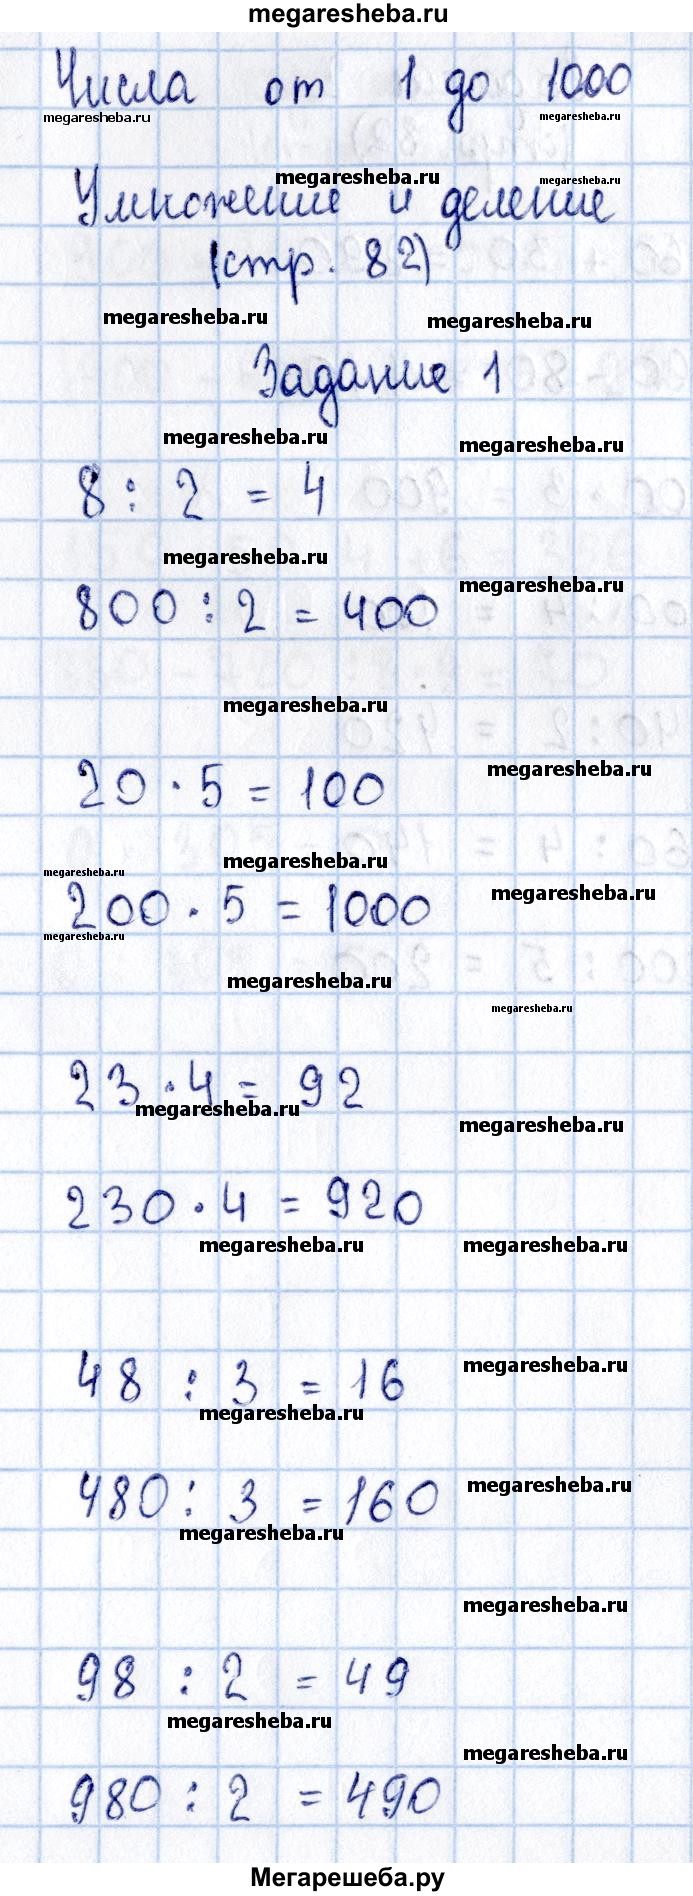 megaresheba.ru
Числа от 1 до 1000
megaresheba.ru megaresheba.ru
megaresheba.ru megaresheba.ru
Умножение и деление
(стр. 82)
megaresheba.ru megaresheba.ru
Задание 1
megaresheba.ru megaresheba.ru
8 : 2 = 4
megaresheba.ru megaresheba.ru
800 : 2 = 400
megaresheba.ru
megaresheba.ru
20 · 5 = 100
megaresheba.ru megaresheba.ru
megaresheba.ru
200 · 5 = 1000
megaresheba.ru
megaresheba.ru
megaresheba.ru
23 · 4 = 92
megaresheba.ru megaresheba.ru
230 · 4 = 920
megaresheba.ru megaresheba.ru
48 : 3 = 16
megaresheba.ru
megaresheba.ru
480 : 3 = 160
megaresheba.ru
megaresheba.ru
megaresheba.ru
98 : 2 = 49
megaresheba.ru
megaresheba.ru
980 : 2 = 490
Мегарешеба.ру